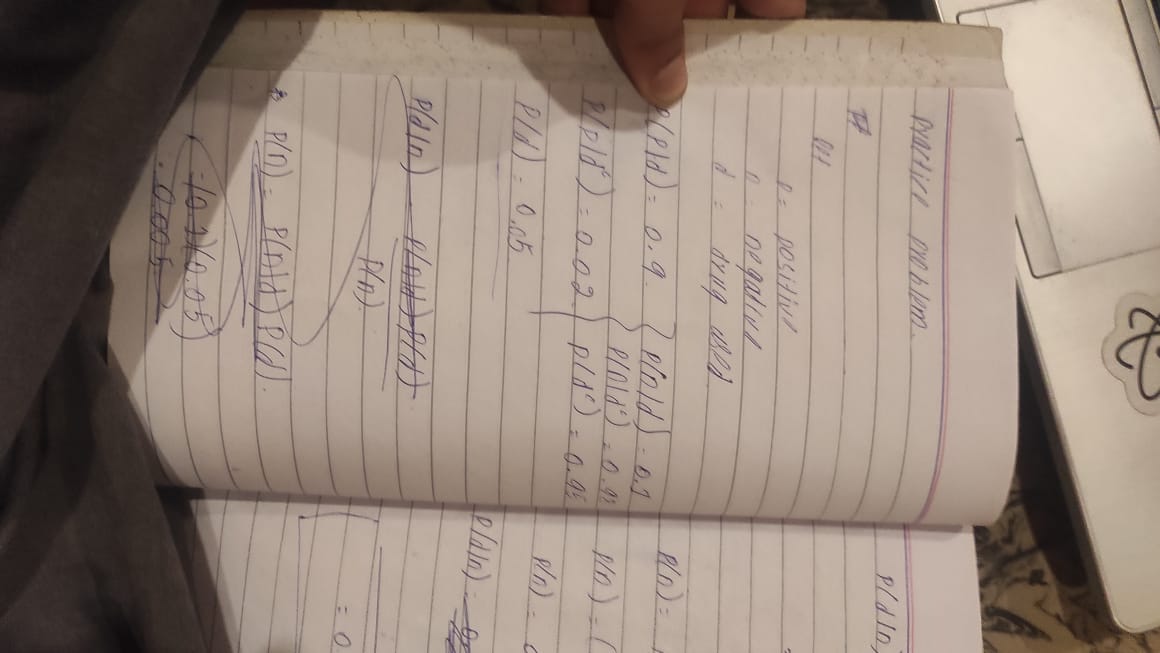 practice problem.
Q1
p = positive
n = negative
d = drug used
P(p|d) = 0.9 } P(n|d) = 0.1
P(p|dᶜ) = 0.02 } P(n|dᶜ) = 0.98
P(d) = 0.05 } P(dᶜ) = 0.95
P(d|n) P(n|d) P(d)
P(n)
P(n) = P(n|d) P(d).
= (0.1)(0.05)
.0.005
P(d|n)
=
P(n) =
P(n) = (
P(n) =
P(d|n) =
= 0